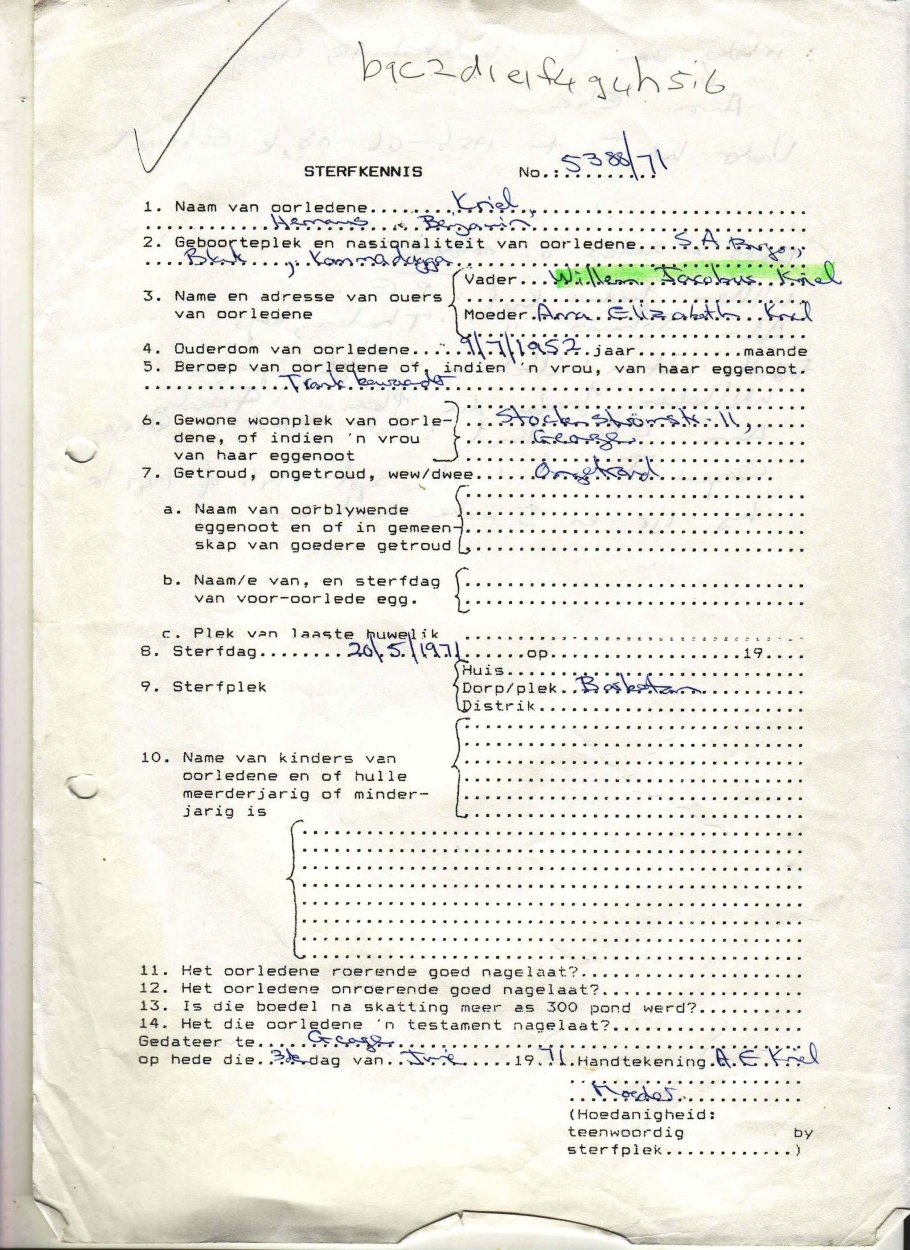 b9c2d1e1f4g4h5i6
STERFKENNIS No.:5388/71
1. Naam van oorledene........Kriel,
Hermans Benjamin
2. Geboorteplek en nasionaliteit van oorledene....S.A. Burger,
Blank, Kommadagga
Vader...Willem Jacobus Kriel
3. Name en adresse van ouers
van oorledene Moeder.Anna Elizabeth Kriel
4. Ouderdom van oorledene.....9/7/1952.jaar..........maande
5. Beroep van oorledene of, indien 'n vrou, van haar eggenoot.
6. Gewone woonplek van oorle-
dene, of indien 'n vrou George
van haar eggenoot
7. Getroud, ongetroud, wew/dwee......Ongetroud
a. Naam van oorblywende
eggenoot en of in gemeen-
skap van goedere getroud
b. Naam/e van, en sterfdag
van voor-oorlede egg.
c. Plek van laaste huwelik
8. Sterfdag.........20/5/1971.......op....................19....
Huis
9. Sterfplek Dorp/plek
Distrik
10. Name van kinders van
oorledene en of hulle
meerderjarig of minder-
jarig is
11. Het oorledene roerende goed nagelaat?
12. Het oorledene onroerende goed nagelaat?
13. Is die boedel na skatting meer as 300 pond werd?
14. Het die oorledene 'n testament nagelaat?
Gedateer te.....George
op hede die..3de.dag van..Junie....19.71.Handtekening.A.E.Kriel
Moeder
(Hoedanigheid:
teenwoordig by
sterfplek............)